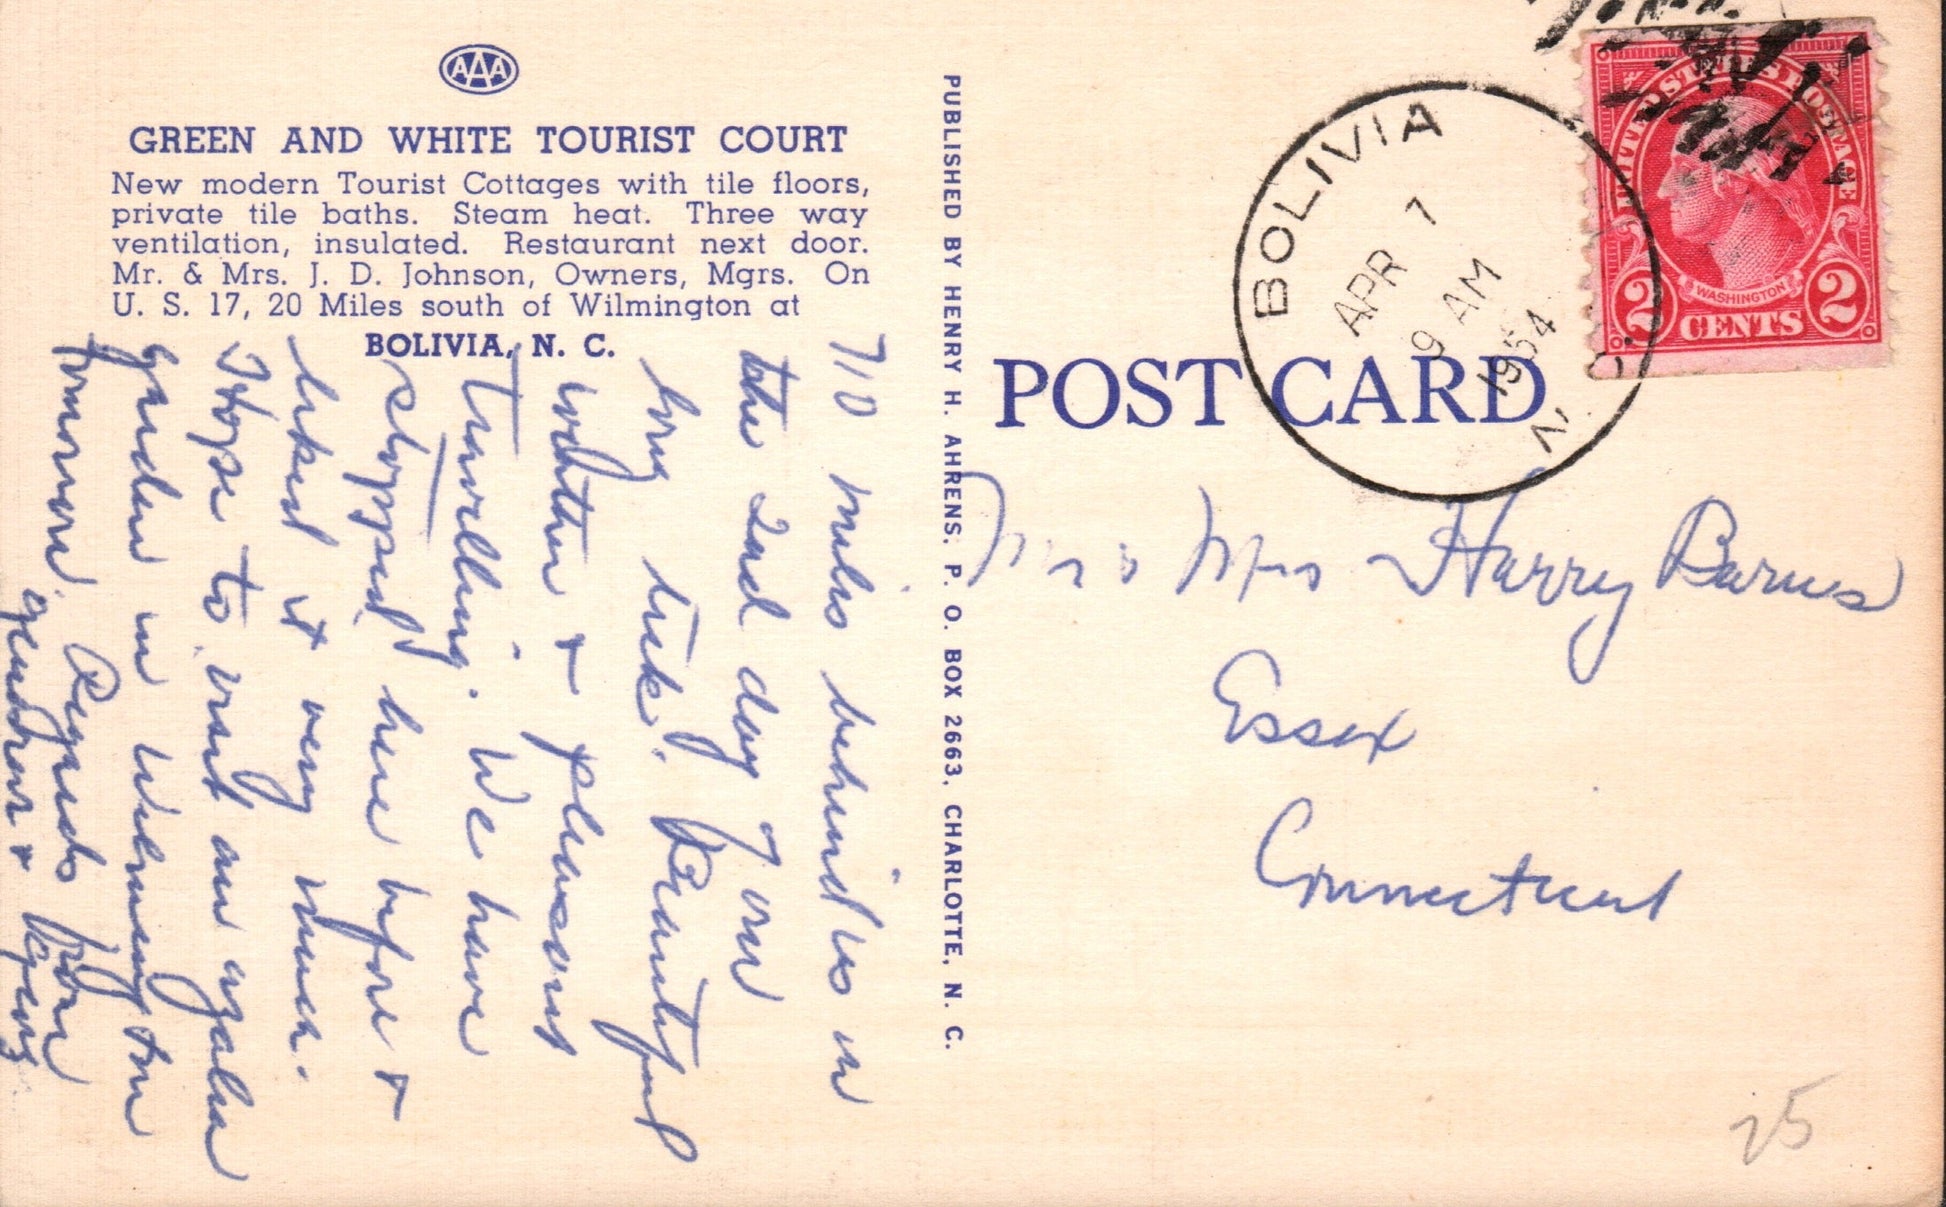 AAA
GREEN AND WHITE TOURIST COURT
New modern Tourist Cottages with tile floors,
private tile baths. Steam heat. Three way
ventilation, insulated. Restaurant next door.
Mr. & Mrs. J. D. Johnson, Owners, Mgrs. On
U. S. 17, 20 Miles south of Wilmington at
BOLIVIA, N. C.
710 miles behind us in
the 2nd day of our
long trek. Beautiful
weather + pleasant
travelling. We have
stopped here before +
liked it very much.
Hope to visit an azalea
garden in Wilmington
tomorrow. Regards from
PUBLISHED BY HENRY H. AHRENS, P. O. BOX 2663, CHARLOTTE, N. C.
POST CARD
BOLIVIA
APR 7
9 AM
1954
N. C.
UNITED STATES POSTAGE
WASHINGTON
2 CENTS 2
Mr + Mrs Harry Barnes
Essex
Connecticut
25